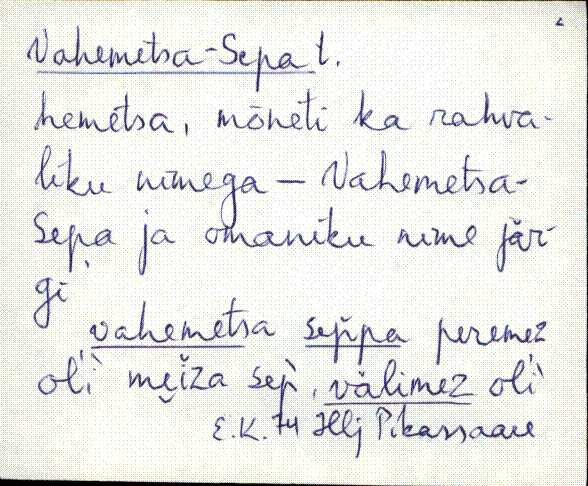 2
Vahemetsa-Sepa t.
hemetsa, mõneti ka rahva-
liku nimega – Vahemetsa-
Sepa ja omaniku nime jär-
gi
vahemetsa seppa peremez
ol'i meiza sep, välimez ol'i
E.K. 74 Hlj Pikassaare